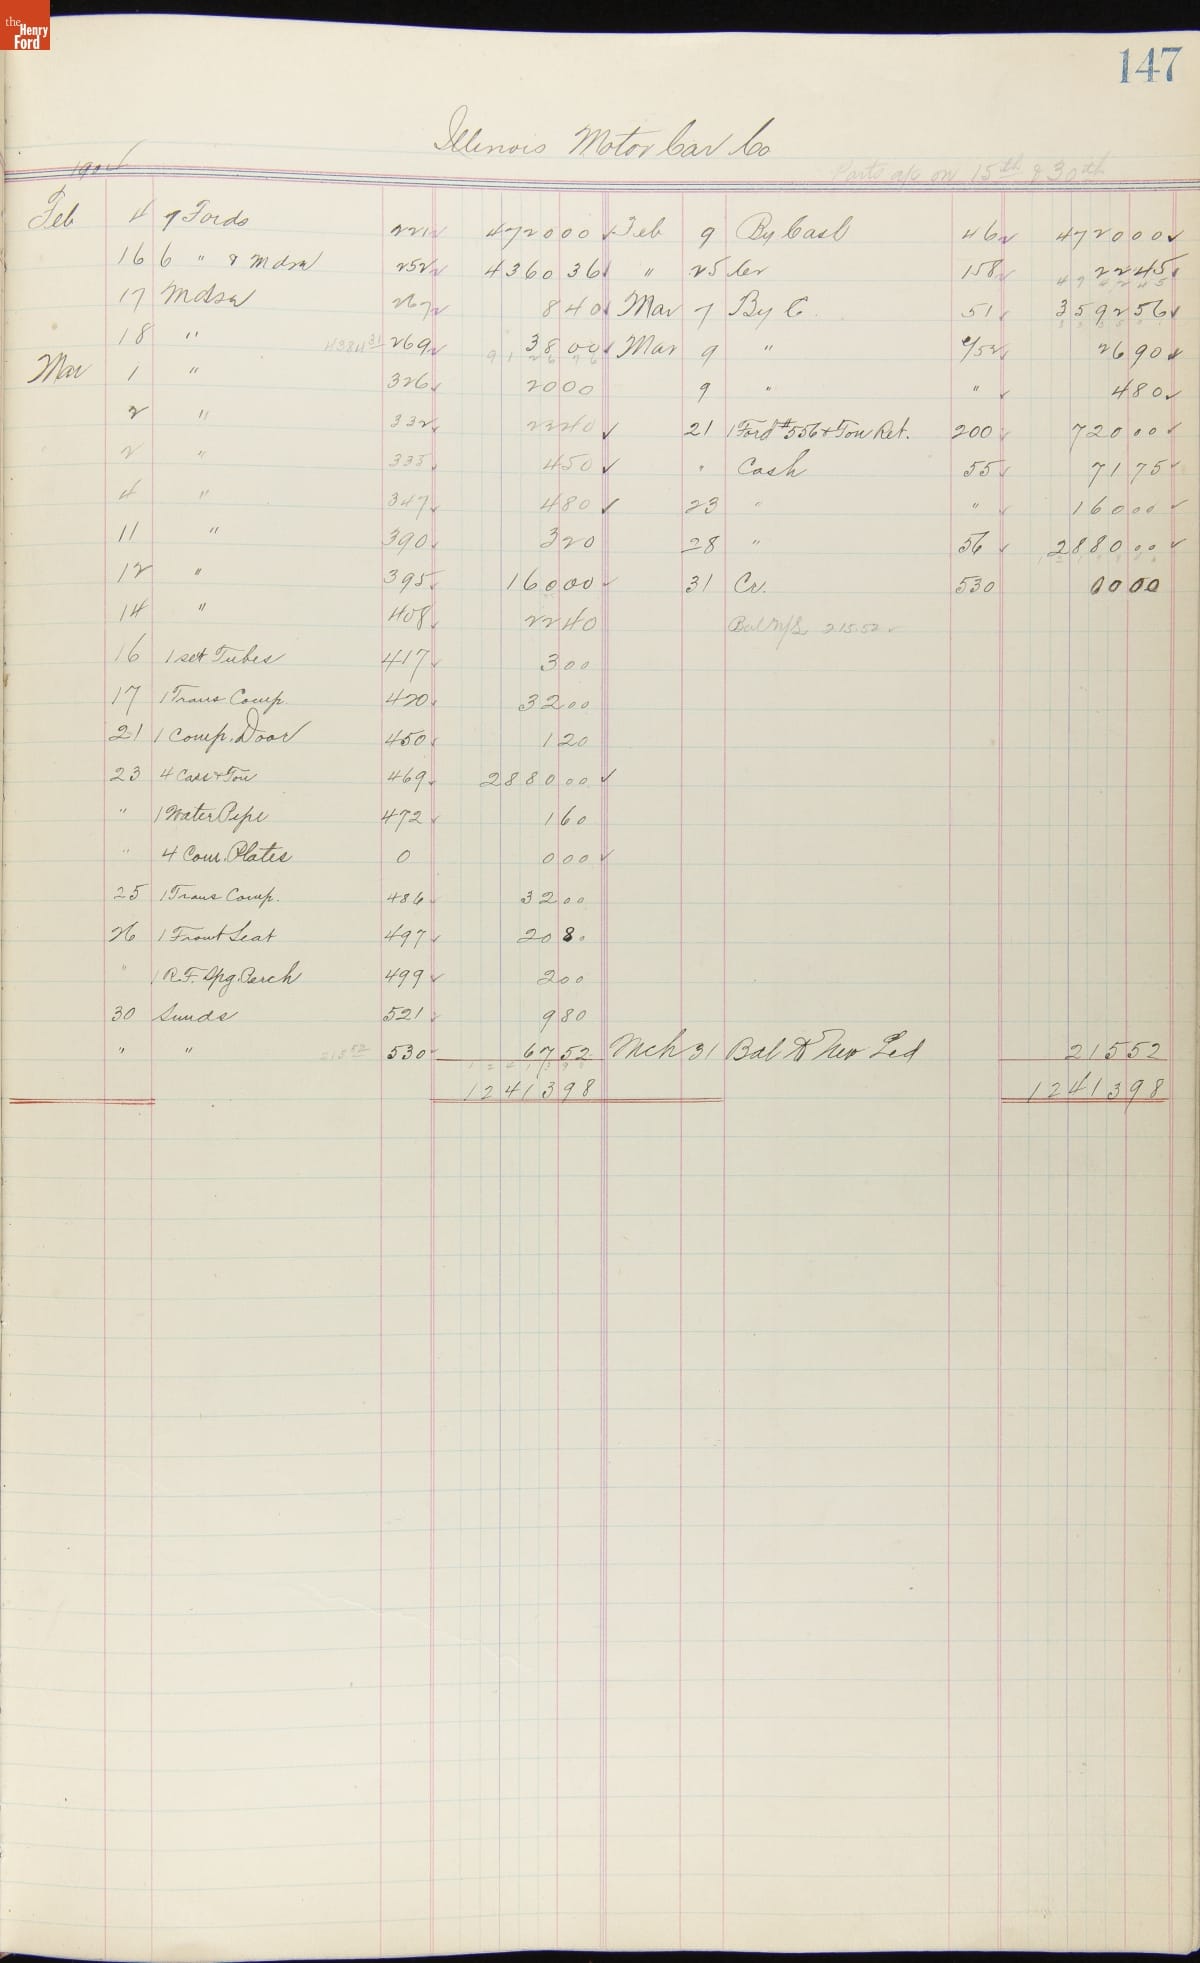 the Henry Ford
147
Illinois Motor Car Co
1904
Parts a/c on 15th & 30th
Feb 4 7 Fords 221 4720 00 Feb 9 By Cash 46 4720 00
16 6 " & Mdse 252 4360 36 " 25 Cr 158 22 45
4 9 4 2 4 5
17 Mdse 267 8 40 Mar 7 By C 51 3592 56
18 " 4384 31 269 38 00 Mar 9 " c/52 26 90
Mar 1 " 326 20 00 9 " " 4 80
2 " 332 22 40 21 1 Ford #556 & Ton Ret. 200 720 00
2 " 335 4 50 " Cash 55 71 75
4 " 347 4 80 23 " " 160 00
11 " 390 3 20 28 " 56 2880 00
12 " 395 160 00 31 Cr. 530 00 00
14 " 408 22 40 215.52
16 1 set Tubes 417 3 00
17 1 Trans Comp. 420 32 00
21 1 Comp. Door 450 1 20
23 4 Cars & Ton 469 2880 00
" 1 Water Pipe 472 1 60
" 4 Com. Plates 0 0 00
25 1 Trans Comp. 486 32 00
26 1 Front Seat 497 20 80
" 1 R.F. Spg. Perch 499 2 00
30 Sunds 521 9 80
" " 215 52 530 67 52 Mch 31 Bal To New Led 215 52
12413 98 12413 98